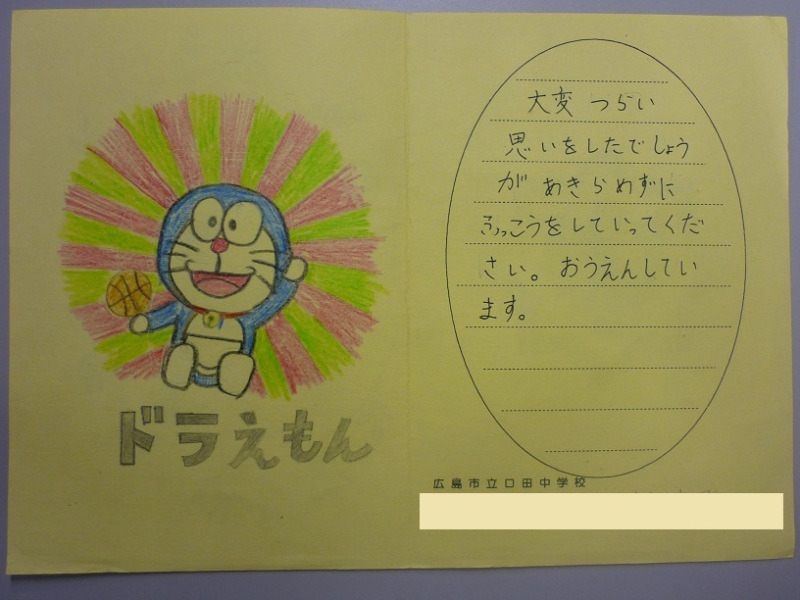 ドラえもん
大変 つらい
思いをしたでしょう
が あきらめずに
ふっこうをしていってくだ
さい。おうえんしてい
ます。
広島市立口田中学校